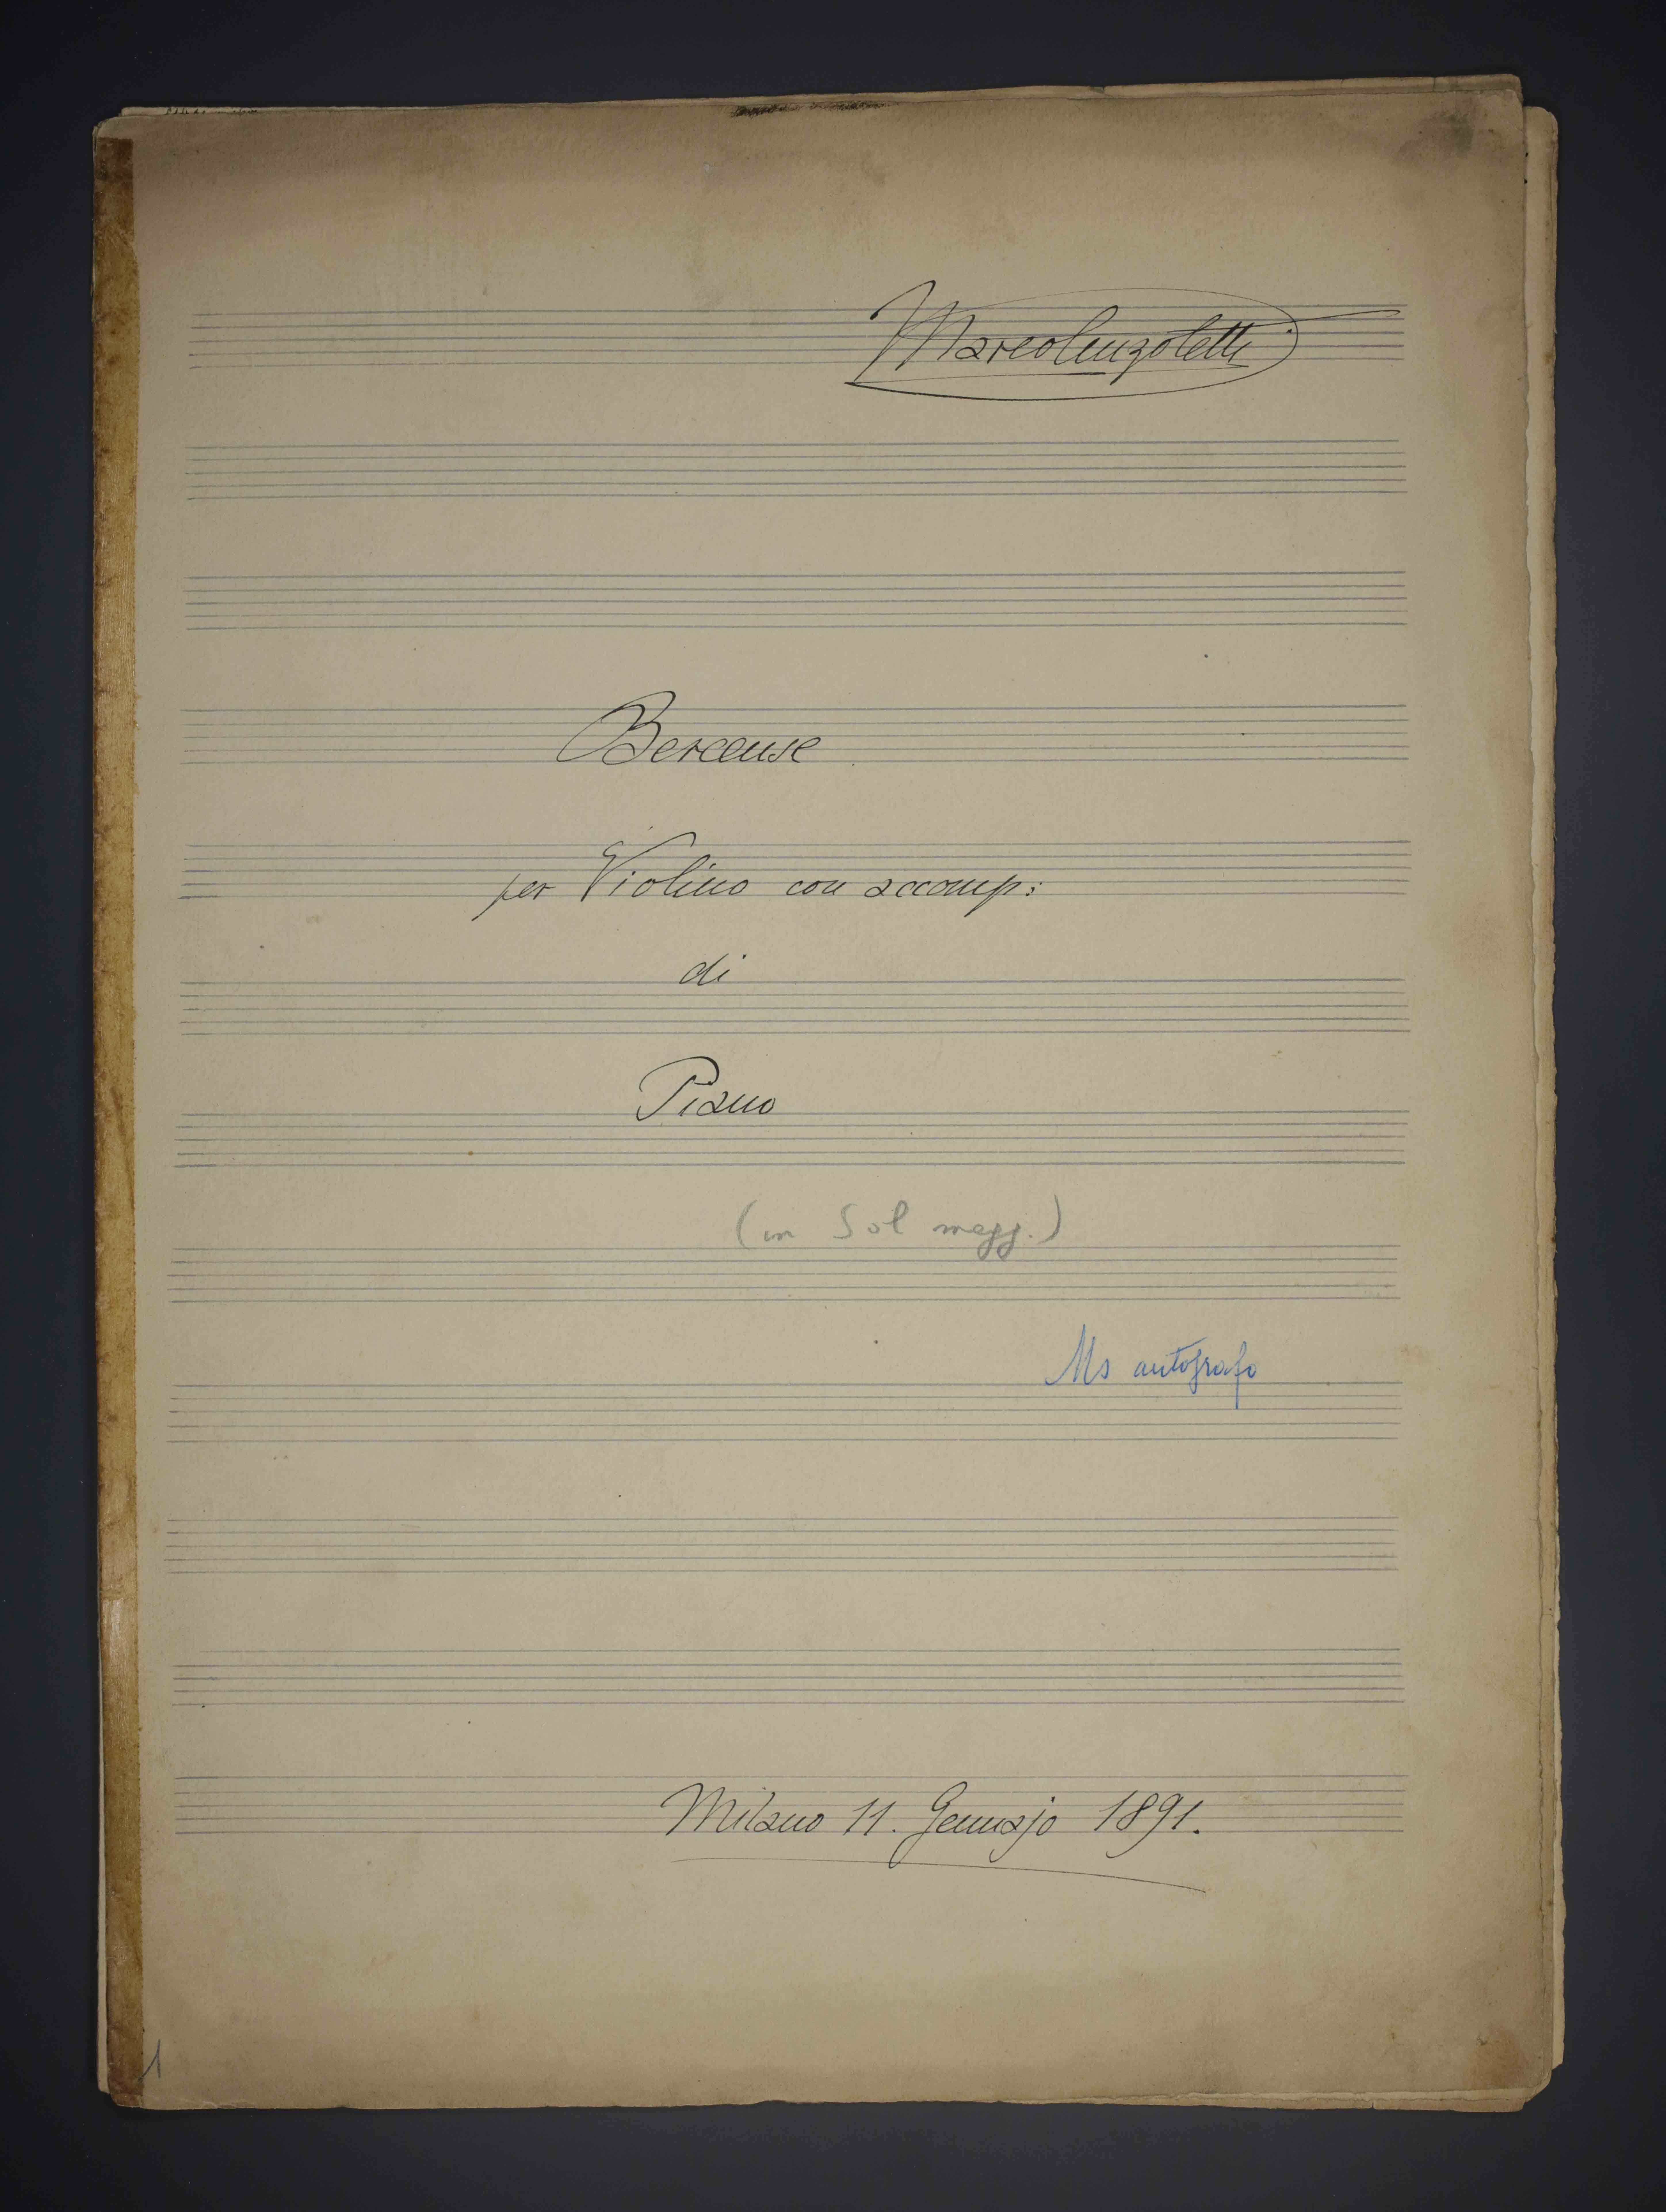 Marcolenzoletti
Berceuse
per Violino con accomp:
di
Piano
(in Sol magg.)
Ms autografo
Milano 11. Gennajo 1891.
1